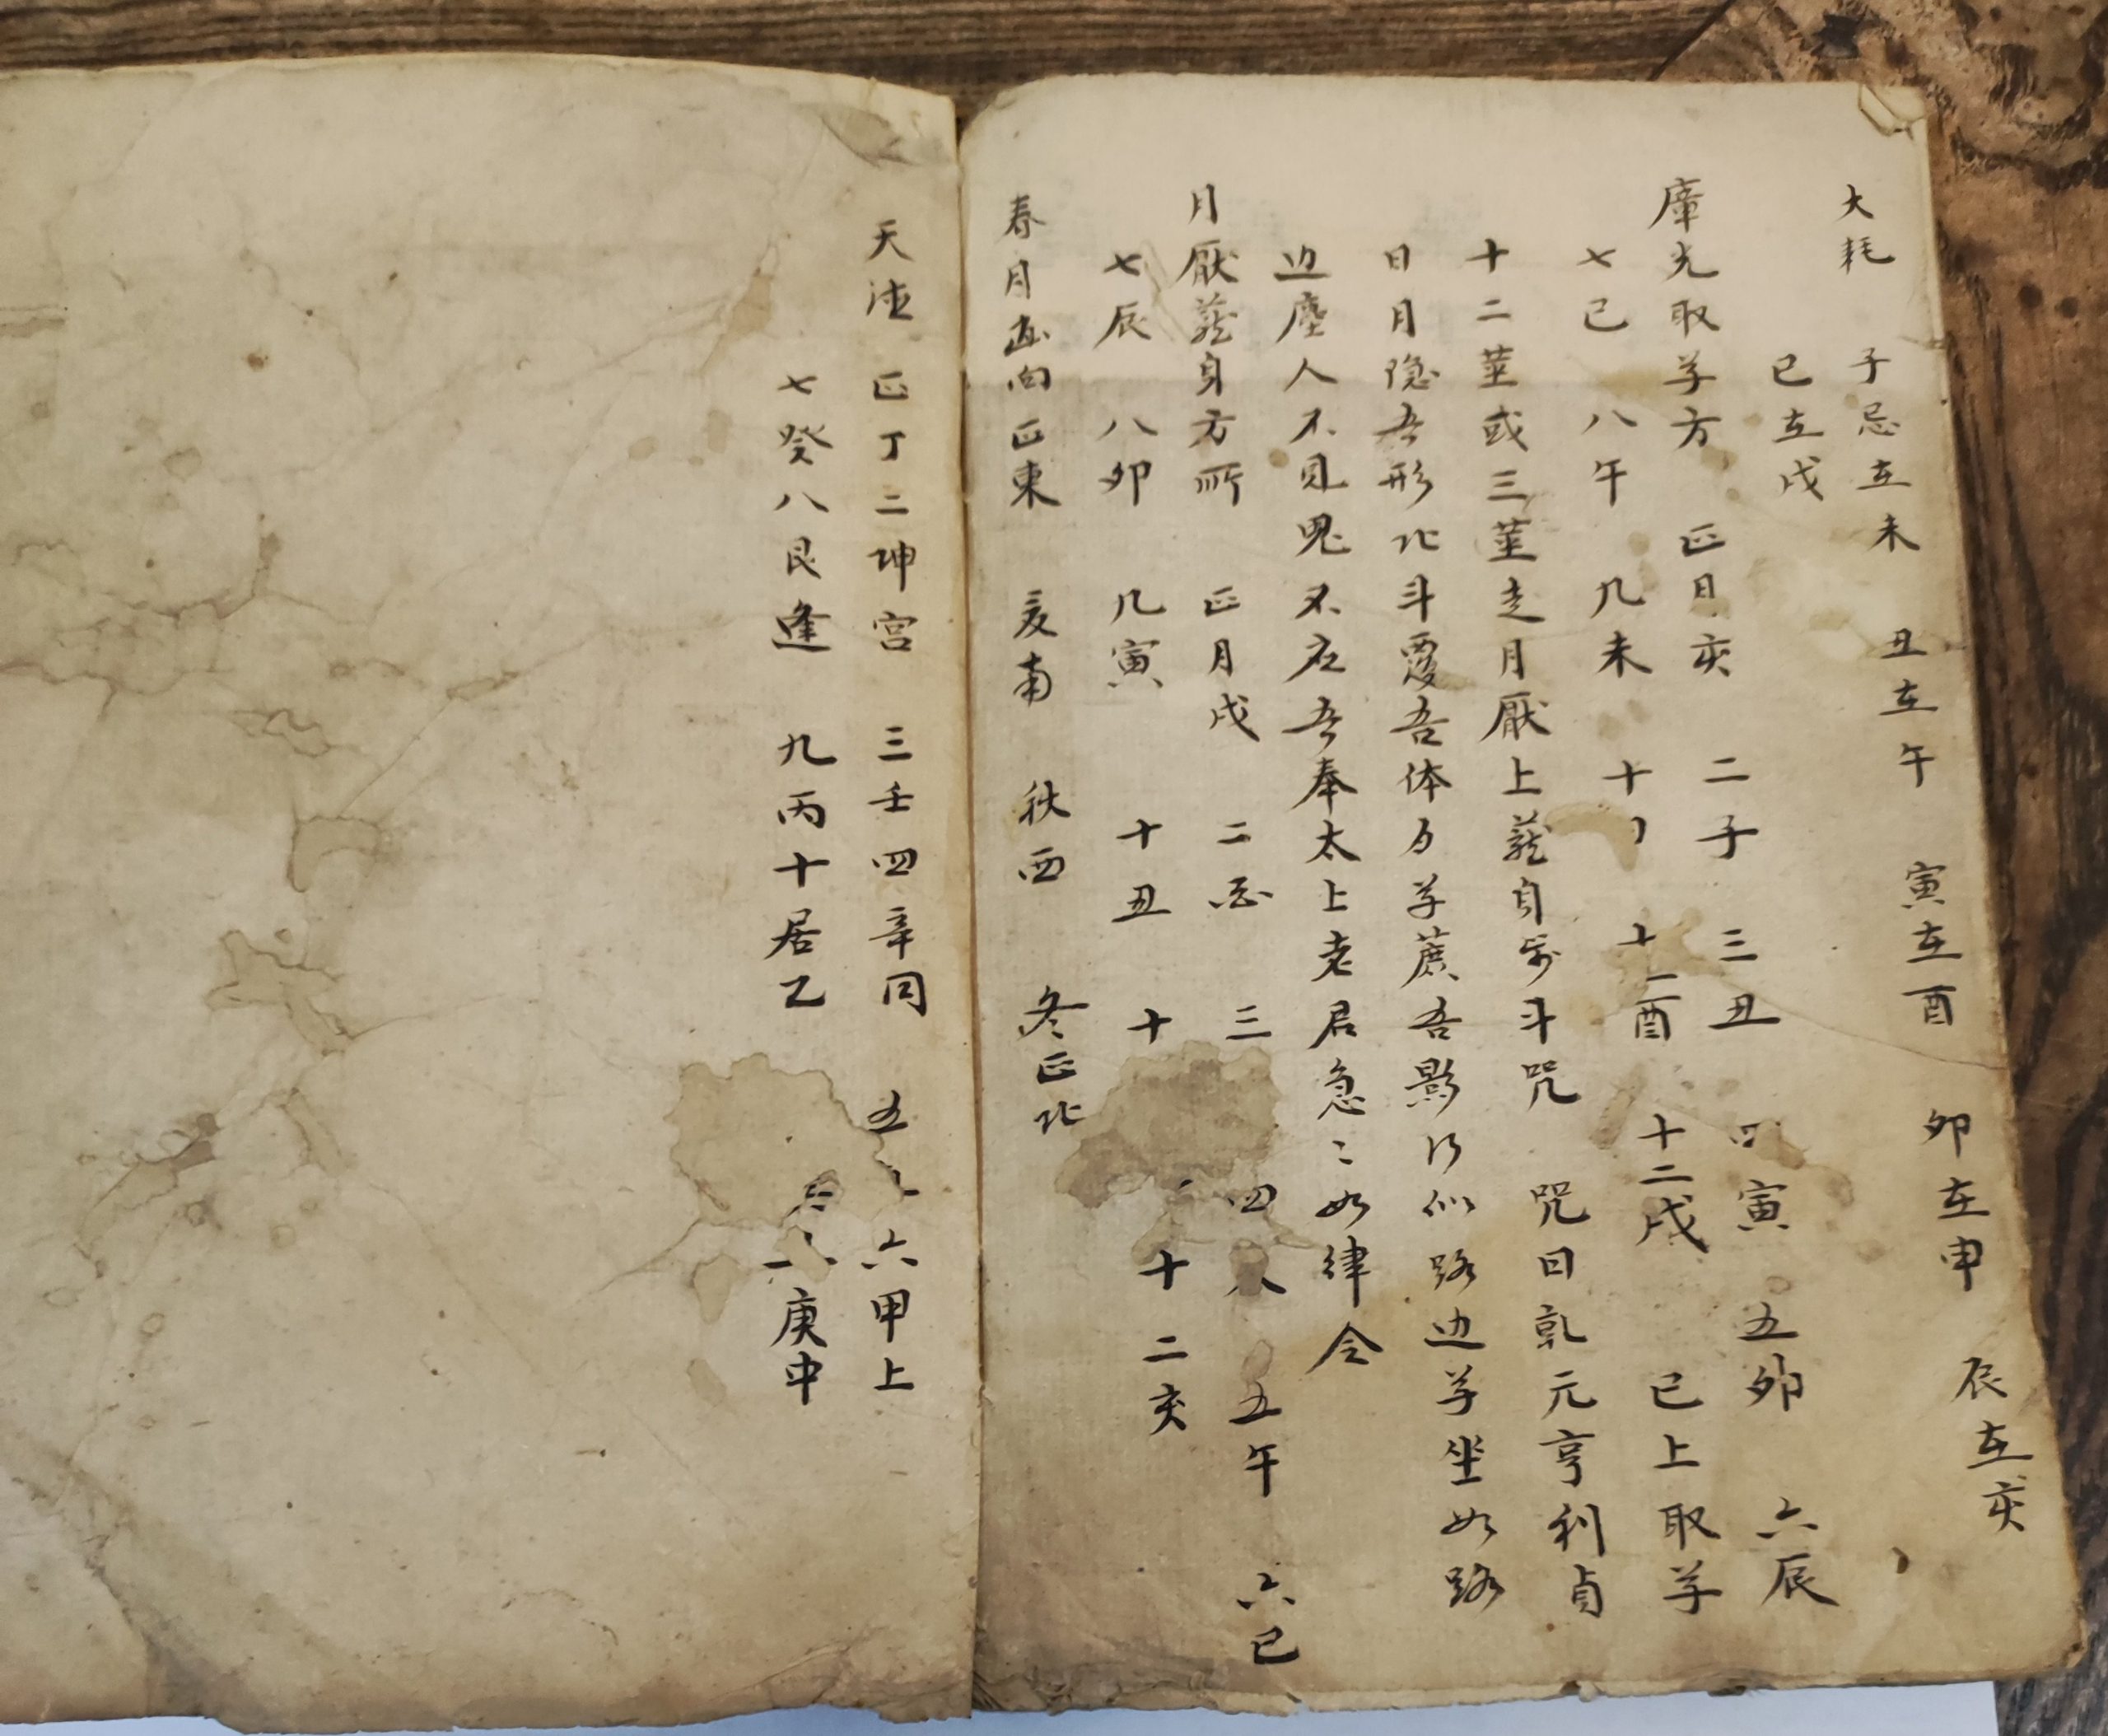 大耗 子忌在未 丑在午 寅在酉 卯在申 辰在亥
巳在戌
光取草方 正日亥 二子 三丑 四寅 五卯 六辰
七巳 八午 几未 十 十一酉 十二戌 已上取草
十二莖或三莖走月厭上藏身步斗咒 咒曰乹元亨利貞
日月隐吾形北斗覆吾体力草蔗吾影行似路边草坐如路
边塵人不見鬼不在吾奉太上老君急〻如律令
月厭藏身方所 正月戌 二酉 三 四 五午 六巳
七辰 八卯 几寅 十丑 十 十二亥
春月面向正東 夏南 秋西 冬正北
天德 正丁二坤宫 三壬四辛同 五 六甲上
七癸八艮逢 九丙十居乙 庚中